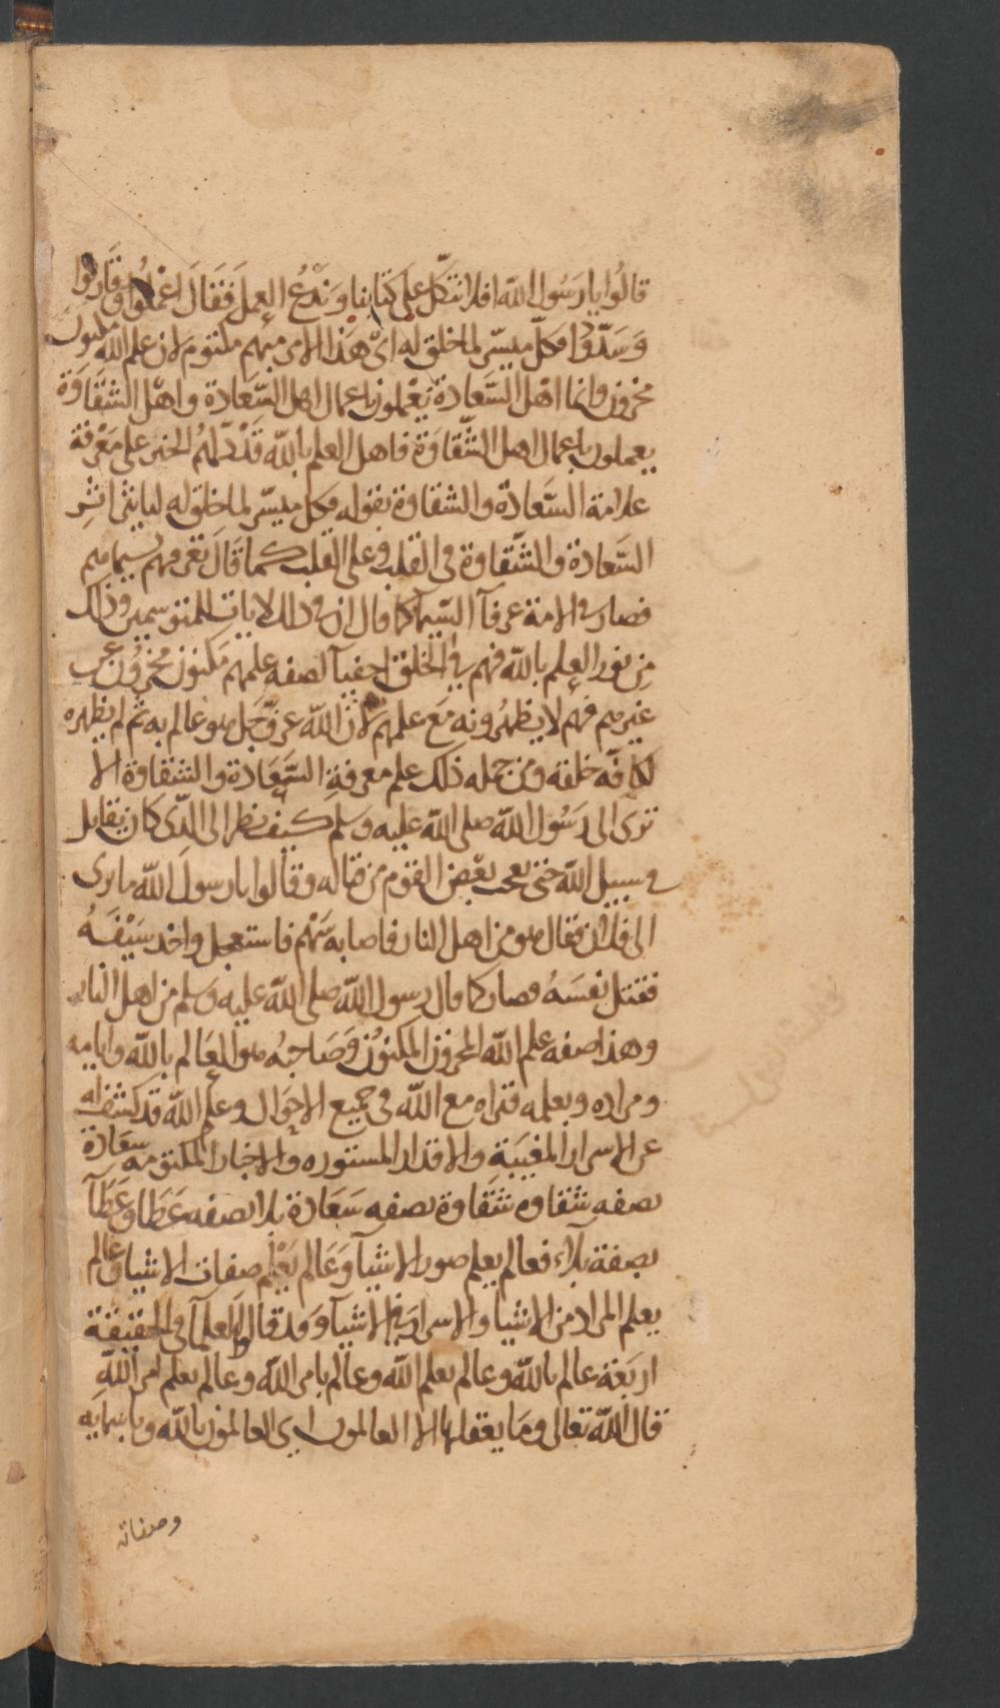 قالُوا يا رَسُول اللّه افلا نتكّل على كتابنا ونَدَعُ العمل فَقَالَ اعْمَلُوا وقَارِبُوا
وَسَدّدُوا فكلّ ميسّر لما خلق له اىْ هَذا الامر مبهم مكتوم لان علم الله مكنون
مخزون وانما اهْل السَّعادة يَعْملون باعمال اهل السّعادة واهْل الشقَاوَة
يعملون باعمال اهل الشّقاوَة فاهل العلم باللّه قَدْ دلّهُم الخبر على مَعْرفة
علامة السَّعادة والشقاوة بقوله فكل ميسّر لما خلق له لبايتْ اثرِ
السَّعادة والشّقاوة فى القلب وعلى القلب كما قَالَ تعرفهم بسيماهم
فصار فى الامة عرفآ السّيما كما قال ان فى ذلك لايات للمتوسمين وذلك
مِن نور العلم باللّه فهم فى الخلق اخفيآ لصفه علمهم مكنون مخزون عن
غيرهم فهم لا يظهرُونه مَع علمهم لانّ اللّه عزّ وجَل هو عالم به ثم لم يظهره
لكافّه خلقه ومن جمله ذلك علم معرفةِ السَّعَادة والشقاوة الا
ترى الى رَسُول اللّه صلى اللّه عليه وَسلم كيف نظر الى الّذى كان يقاتل
فى سبيل اللّه حتى تعجب بعْض القوم من قتاله وقالوا يا رسولَ اللّه ما ترى
الى فلان فقال هو من اهل النار فاصابه سَهْم فاستعجل واخذ سَيْفَهُ
فقتل نفسَهُ فصار كما قال رسول اللّه صلى اللّه عليه وَسلم من اهل النار
وهذا صفه علم اللّه المخزون المكنوُن وَصَاحبُه هو العَالم باللّه وايامه
ومراده وبعلمه فتراه مع اللّه فى جميع الاحوَال وعلم اللّه قد كشف له
عن الاسرار المغيبَةِ والاقدار المستوره والاخبار المكتومه سعَادة
بصفه شقاوه شقَاوة بصفه سَعَادة بلا بصفه عَطَا وعَطَآ
بصفة بلآء فعالم يعلم صور الاشيآ وَعَالم يَعْلم صفات الاشيا وعالم
يعلم المراد من الاشيا والاسرار فى الاشيآ وَقد قالَ العلمآ فى الحقيقة
اربَعَة عالم باللّه وعالم بعلم اللّه وعالم بامر اللّه وعالم بعلم امر اللّهِ
قال اللّه تعالى ومَا يعقلها الا العالمون اى العالمون باللّه وباسمايه
وصفاته